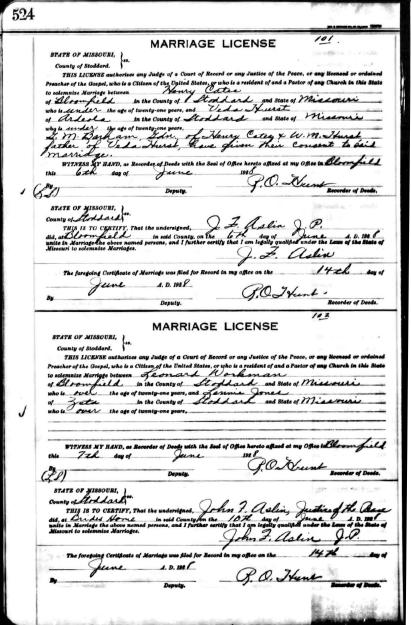 524
MARRIAGE LICENSE
101
STATE OF MISSOURI,
County of Stoddard. } ss.
THIS LICENSE authorizes any Judge of a Court of Record or any Justice of the Peace, or any licensed or ordained
Preacher of the Gospel, who is a Citizen of the United States, or who is a resident of and a Pastor of any Church in this State
to solemnize Marriage between Henry Cates
of Bloomfield in the County of Stoddard and State of Missouri
who is under the age of twenty-one years, and Veda Hurst
of Ardeola in the County of Stoddard and State of Missouri
who is under the age of twenty-one years.
Gdn. of Henry Cates & W. M. Hurst
father of Veda Hurst, have given their consent to said
marriage.
WITNESS MY HAND, as Recorder of Deeds with the Seal of Office hereto affixed at my Office in Bloomfield
this 6th day of June 1908
By R. O. Hunt
Deputy. Recorder of Deeds.
STATE OF MISSOURI,
County of Stoddard } ss.
THIS IS TO CERTIFY, That the undersigned, J. F. Aslin J. P.
did, at Bloomfield in said County, on the 6th day of June A. D. 1908
unite in Marriage the above named persons, and I further certify that I am legally qualified under the Laws of the State of
Missouri to solemnize Marriages.
J. F. Aslin
The foregoing Certificate of Marriage was filed for Record in my office on the 14th day of
June A. D. 1908
By R. O. Hunt.
Deputy. Recorder of Deeds.
MARRIAGE LICENSE
102
STATE OF MISSOURI,
County of Stoddard. } ss.
THIS LICENSE authorizes any Judge of a Court of Record or any Justice of the Peace, or any licensed or ordained
Preacher of the Gospel, who is a Citizen of the United States, or who is a resident of and a Pastor of any Church in this State
to solemnize Marriage between Leonard Workman
of Bloomfield in the County of Stoddard and State of Missouri
who is over the age of twenty-one years, and Jones
of Zeta in the County of Stoddard and State of Missouri
who is over the age of twenty-one years.
WITNESS MY HAND, as Recorder of Deeds with the Seal of Office hereto affixed at my Office in Bloomfield
this 7th day of June 1908
By R. O. Hunt
Deputy. Recorder of Deeds.
STATE OF MISSOURI,
County of Stoddard } ss.
THIS IS TO CERTIFY, That the undersigned, John F. Aslin, Justice of the Peace
did, at Brides Home in said County, on the 10th day of June A. D. 1908
unite in Marriage the above named persons, and I further certify that I am legally qualified under the Laws of the State of
Missouri to solemnize Marriages.
John F. Aslin J. P.
The foregoing Certificate of Marriage was filed for Record in my office on the 14th day of
June A. D. 1908
By R. O. Hunt
Deputy. Recorder of Deeds.